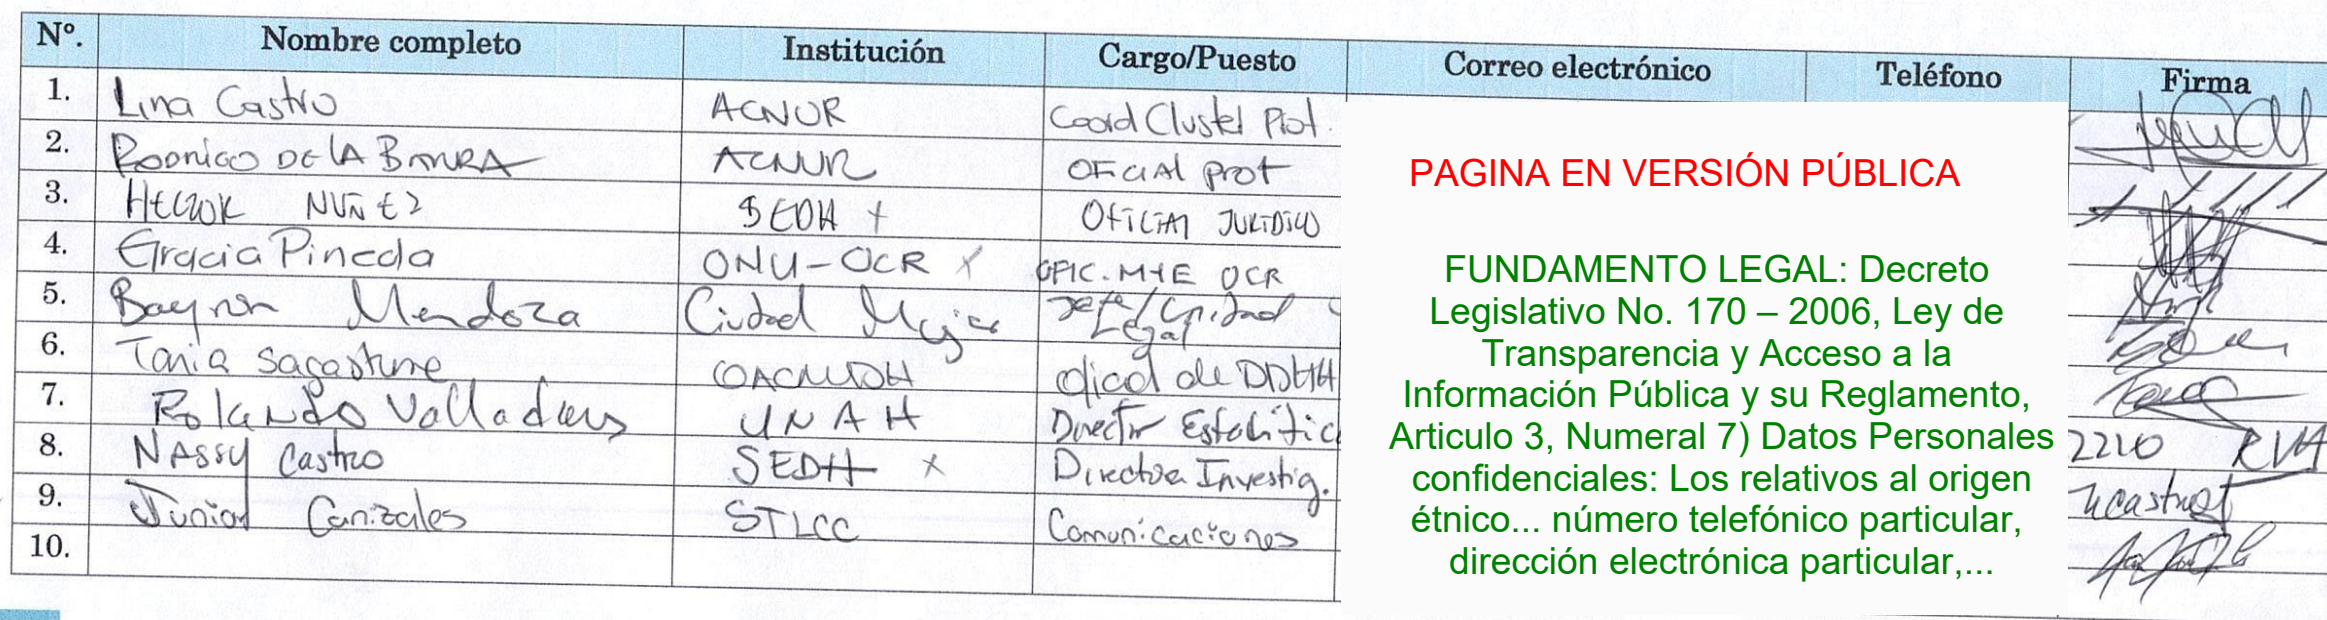 Nº. Nombre completo Institución Cargo/Puesto Correo electrónico Teléfono Firma
1. Lina Castro ACNUR Coord Cluster Prot.
2. Rodrigo DE LA BARRA ACNUR OFicial prot
3. HECTOR NUÑEZ SEDH + OFICIAL JURIDICO
4. Gracia Pineda ONU-OCR X OFIC. M+E OCR
5. Bayron Mendoza Ciudad Mujer Jefe/Unidad Legal
6. Tania Sagastume OACNUDH oficial de DDHH
7. Rolando Valladares UNAH Director Estadístic 2210 RVA
8. NASSY Castro SEDH X Directora Investig. ncastro
9. Junior Canizales STLCC Comunicaciones
10.
PAGINA EN VERSIÓN PÚBLICA
FUNDAMENTO LEGAL: Decreto
Legislativo No. 170 – 2006, Ley de
Transparencia y Acceso a la
Información Pública y su Reglamento,
Articulo 3, Numeral 7) Datos Personales
confidenciales: Los relativos al origen
étnico... número telefónico particular,
dirección electrónica particular,...